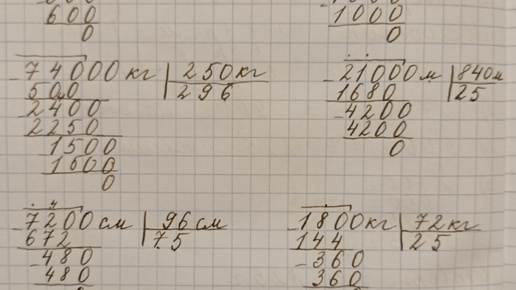 600
1000
0
0
74000 кг | 250 кг
500
296
2400
2250
1500
1500
0
21000 м | 840 м
1680
25
4200
4200
0
7200 см | 96 см
672
75
480
480
1800 кг | 72 кг
144
25
360
360